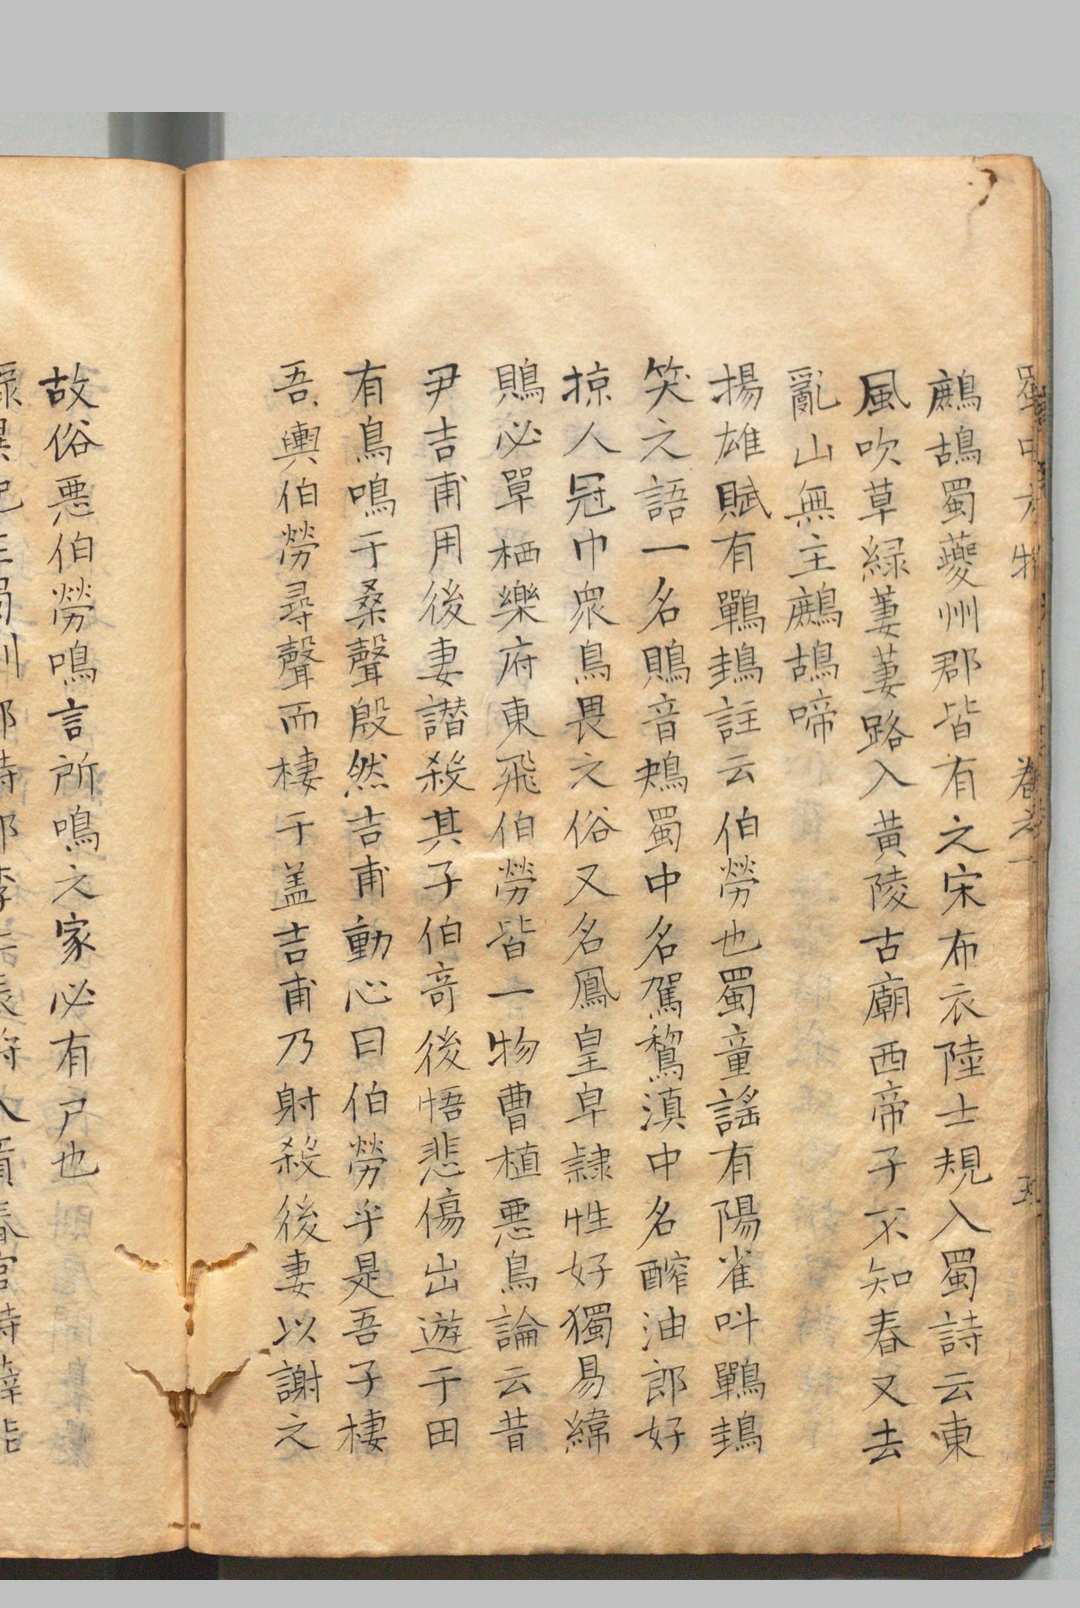 蜀中方物 卷之一 五
鷓鴣蜀夔州郡皆有之宋布衣陸士規入蜀詩云東
風吹草緑萋萋路入黄陵古廟西帝子不知春又去
亂山無主鷓鴣啼
揚雄賦有鷤䳏註云伯勞也蜀童謡有陽雀呌鷤䳏
笑之語一名鵙音鴂蜀中名駕鶖滇中名醡油郎好
掠人冠巾衆鳥畏之俗又名鳳皇皁隷性好獨易緯
鵙必單栖樂府東飛伯勞皆一物曹植悪鳥論云昔
尹吉甫用後妻譛殺其子伯奇後悟悲傷出遊于田
有鳥鳴于桑聲殷然吉甫動心曰伯勞乎是吾子棲
吾輿伯勞尋聲而棲于盖吉甫乃射殺後妻以謝之
故俗悪伯勞鳴言所鳴之家必有尸也